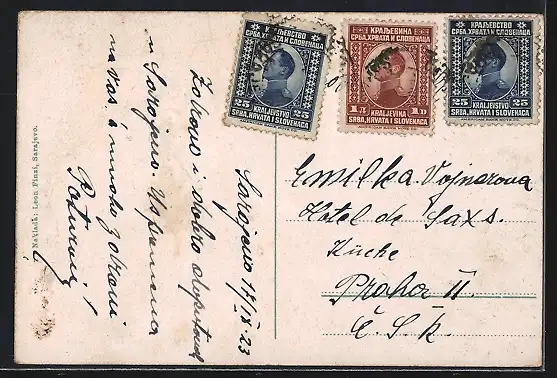 КРАЉЕВСТВО
СРБА, ХРВАТА И СЛОВЕНАЦА
25 25
KRALJEVSTVO
SRBA, HRVATA I SLOVENACA
КРАЉЕВИНА
СРБА, ХРВАТА И СЛОВЕНАЦА
1 Д 1 D
KRALJEVINA
SRBA, HRVATA I SLOVENACA
КРАЉЕВСТВО
СРБА, ХРВАТА И СЛОВЕНАЦА
25 25
KRALJEVSTVO
SRBA, HRVATA I SLOVENACA
Sarajevo 17/IX 23
Zdravo i dobro
u Sarajevo.
na Vas. i mnogo zdravi
Emilka Vojnarova
Hotel de Saxs.
Küche
Praha II.
Č.S.R.
Nakladа: Leon Finzi, Sarajevo.